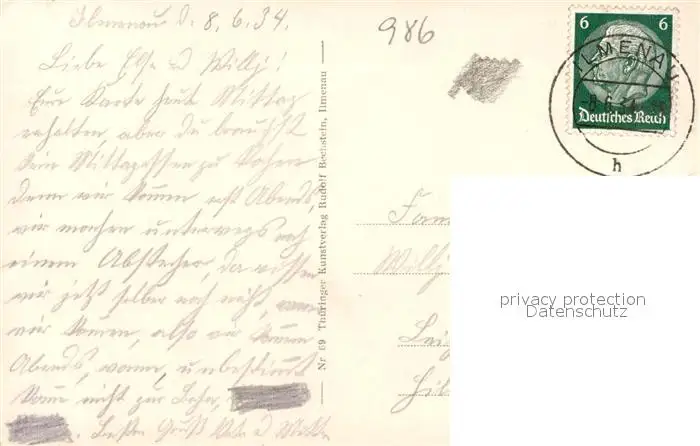 Ilmenau d. 8.6.34.
Liebe Else u Willj!
Eure Karte heut Mittag
erhalten, aber du brauchst
kein Mittagessen zu kochen
denn wir kommen erst Abends,
wir machen unterwegs noch
einen Abstecher, da wissen
wir jetzt selber noch nicht, wann
wir kommen, also wir kommen
Abends, wann, unbestimmt
komme nicht zur Bahn,
Besten Gruß
986
6 6
Deutsches Reich
ILMENAU
-8.6.34
h
Nr 69 Thüringer Kunstverlag Rudolf Bechstein, Ilmenau
Fam
Willj
Lei
privacy protection
Datenschutz